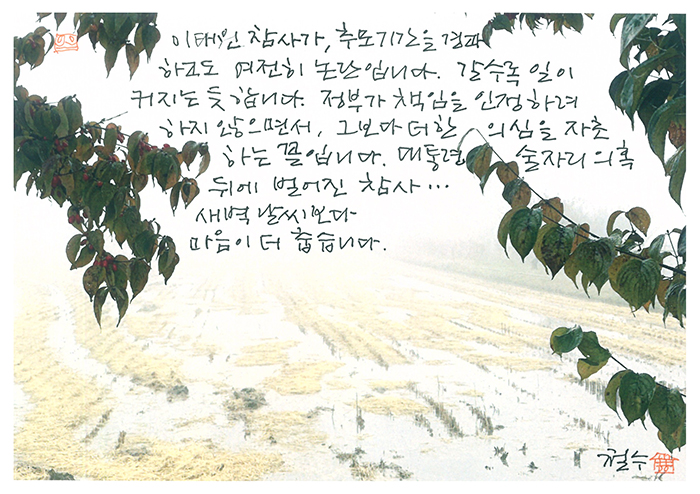 이태원 참사가, 추모기간을 경과
하고도 여전히 논란입니다. 갈수록 일이
커지는 듯 합니다. 정부가 책임을 인정하려
하지 않으면서, 그보다 더한 의심을 자초
하는 꼴입니다. 대통령 술자리 의혹
뒤에 벌어진 참사…
새벽 날씨보다
마음이 더 춥습니다.
철수